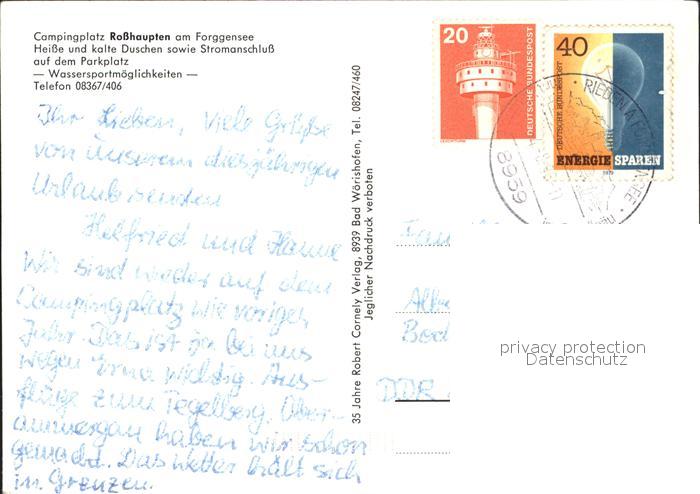 Campingplatz Roßhaupten am Forggensee
Heiße und kalte Duschen sowie Stromanschluß
auf dem Parkplatz
— Wassersportmöglichkeiten —
Telefon 08367/406
Ihr Lieben, Viele Grüße
von unserem diesjährigen
Urlaub senden
Helfried und Hanne
Wir sind wieder auf dem
Campingplatz wie voriges
Jahr. Das ist ja bei uns
wegen Erna wichtig. Aus-
flüge zum Tegelberg. Ober-
ammergau haben wir schon
gemacht. Das Wetter hält sich
in Grenzen.
35 Jahre Robert Cornely Verlag, 8939 Bad Wörishofen, Tel. 08247/460
Jeglicher Nachdruck verboten
20
DEUTSCHE BUNDESPOST
LEUCHTTURM
40
DEUTSCHE BUNDESPOST
ENERGIE SPAREN
1979
8959 RIEDEN A. FORGGENSEE
Fam
DDR
privacy protection
Datenschutz